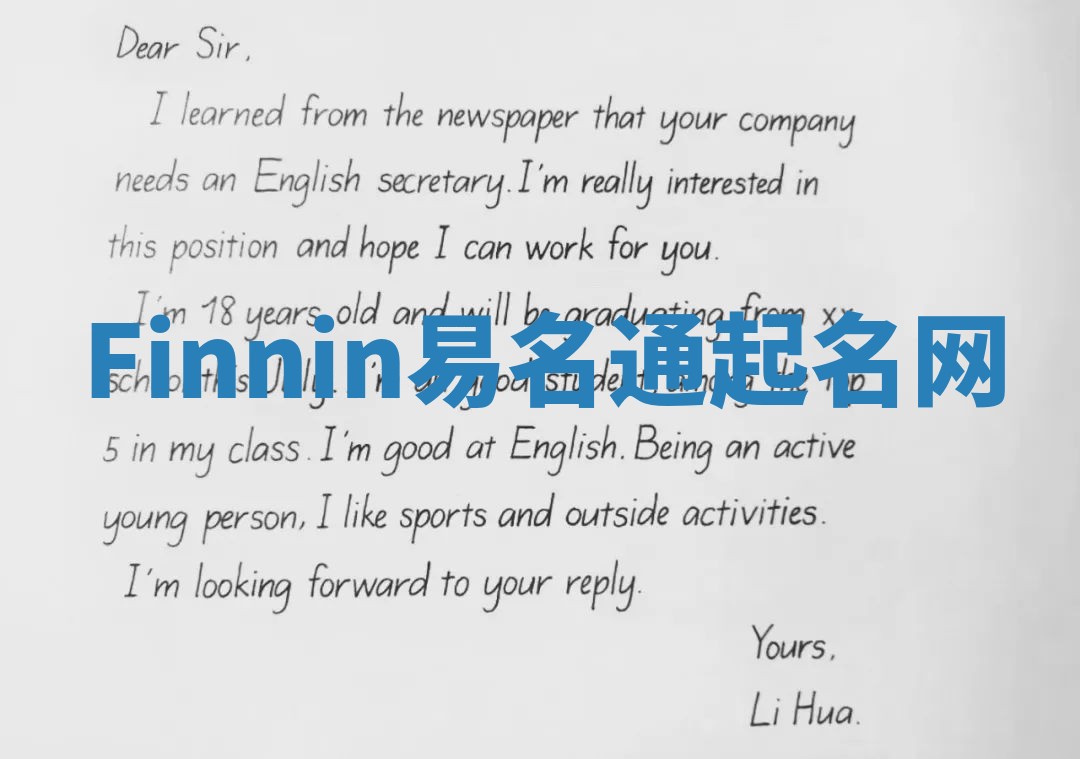 Dear Sir,
I learned from the newspaper that your company
needs an English secretary. I'm really interested in
this position and hope I can work for you.
I'm 18 years old and will be graduating from xx
Finnin易名通起名网
school this July. I'm a good student, among the top
5 in my class. I'm good at English. Being an active
young person, I like sports and outside activities.
I'm looking forward to your reply.
Yours,
Li Hua.